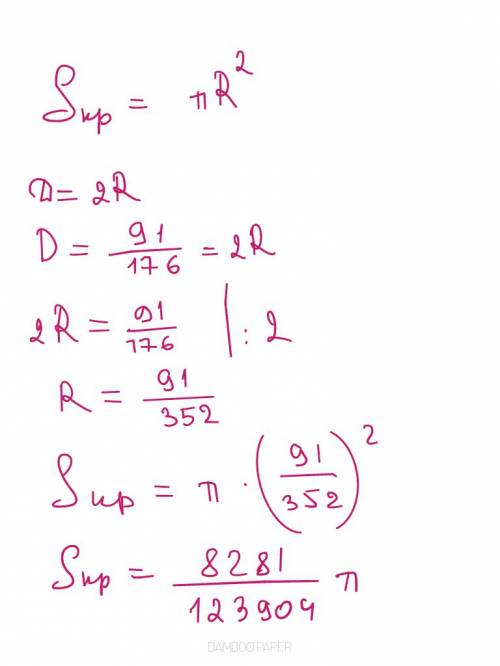 Sкр = πR²
D = 2R
D = 91/176 = 2R
2R = 91/176 | : 2
R = 91/352
Sкр = π · (91/352)²
Sкр = 8281/123904 π
BAMBOOPAPER